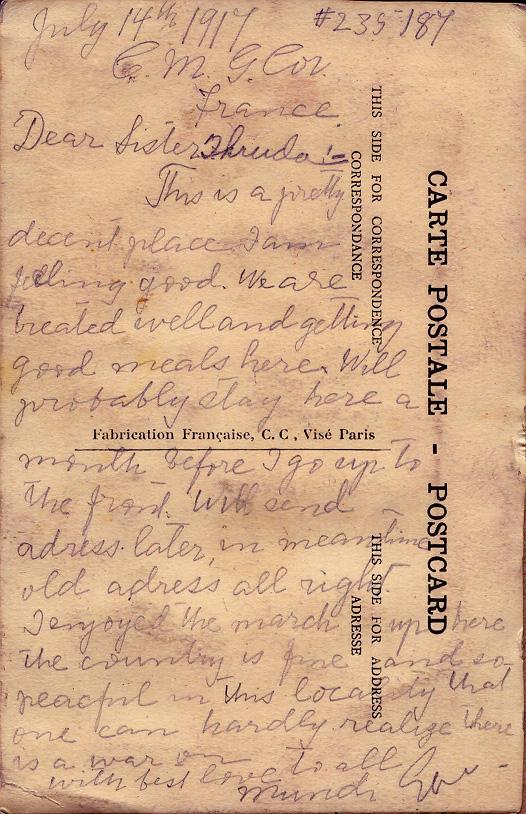 July 14th 1917 #235187
C. M. G. Cor.
France.
Dear Sister :-
This is a pretty
decent place I am
felling good. We are
treated well and getting
good meals here. Will
probably stay here a
month before I go up to
the front. Will send
adress later, in meantime
old adress all right.
I enjoyed the march up here
the country is fine and so
peacful in this locality that
one can hardly realize there
is a war on
with best love to all
CARTE POSTALE - POSTCARD
THIS SIDE FOR CORRESPONDENCE
CORRESPONDANCE
THIS SIDE FOR ADDRESS
ADRESSE
Fabrication Française, C. C , Visé Paris